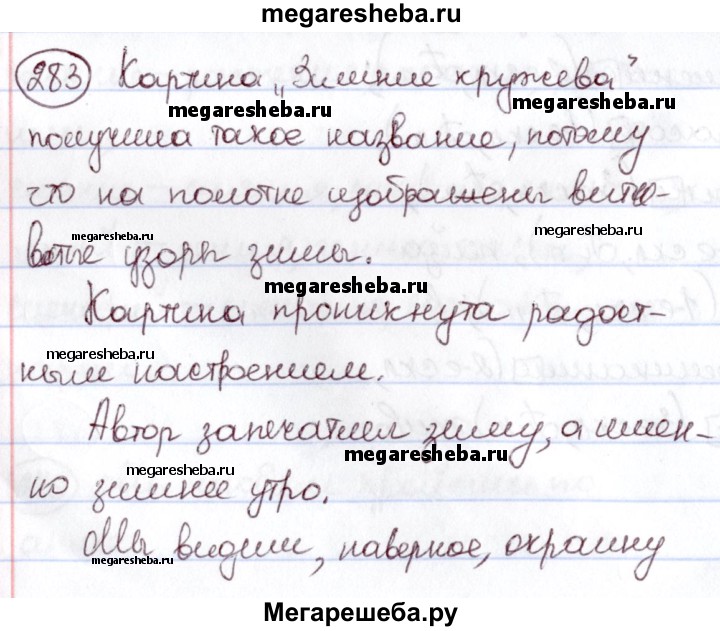 megaresheba.ru
283 Картина „Зимние кружева"
megaresheba.ru
megaresheba.ru
получила такое название, потому
что на полотне изображены витие-
megaresheba.ru
megaresheba.ru
ватые узоры зимы.
megaresheba.ru
Картина проникнута радост-
megaresheba.ru
megaresheba.ru
ным настроением.
Автор запечатлел зиму, а имен-
megaresheba.ru
megaresheba.ru
но зимнее утро.
Мы видим, наверное, окраину
megaresheba.ru
megaresheba.ru
Мегарешеба.ру